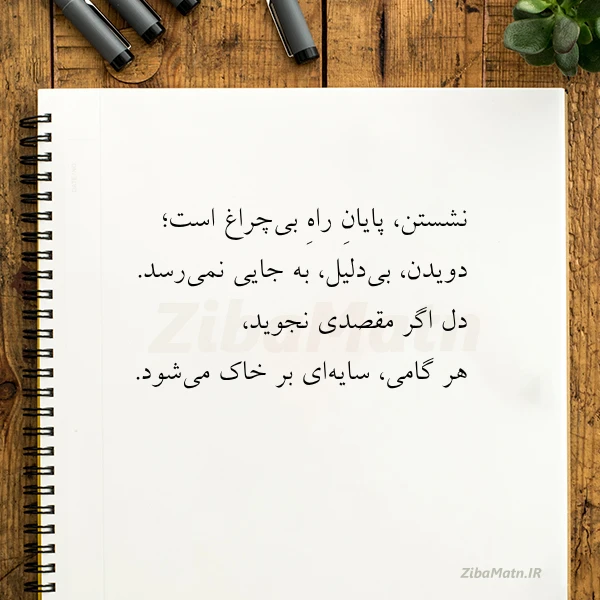 نشستن، پایانِ راهِ بی‌چراغ است؛
دویدن، بی‌دلیل، به جایی نمی‌رسد.
دل اگر مقصدی نجوید،
هر گامی، سایه‌ای بر خاک می‌شود.
ZibaMatn
ZibaMatn.IR